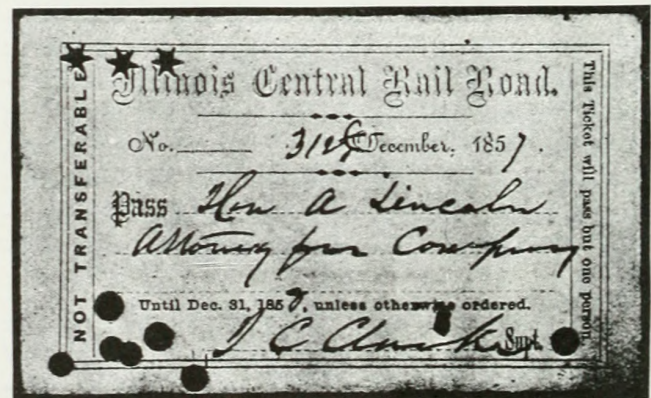 Illinois Central Rail Road.
No. 31st December, 1857.
Pass Hon A Lincoln
Attorney for Company
Until Dec. 31, 1858, unless otherwise ordered.
J C Clarke Supt.
NOT TRANSFERABLE
This Ticket will pass but one person.